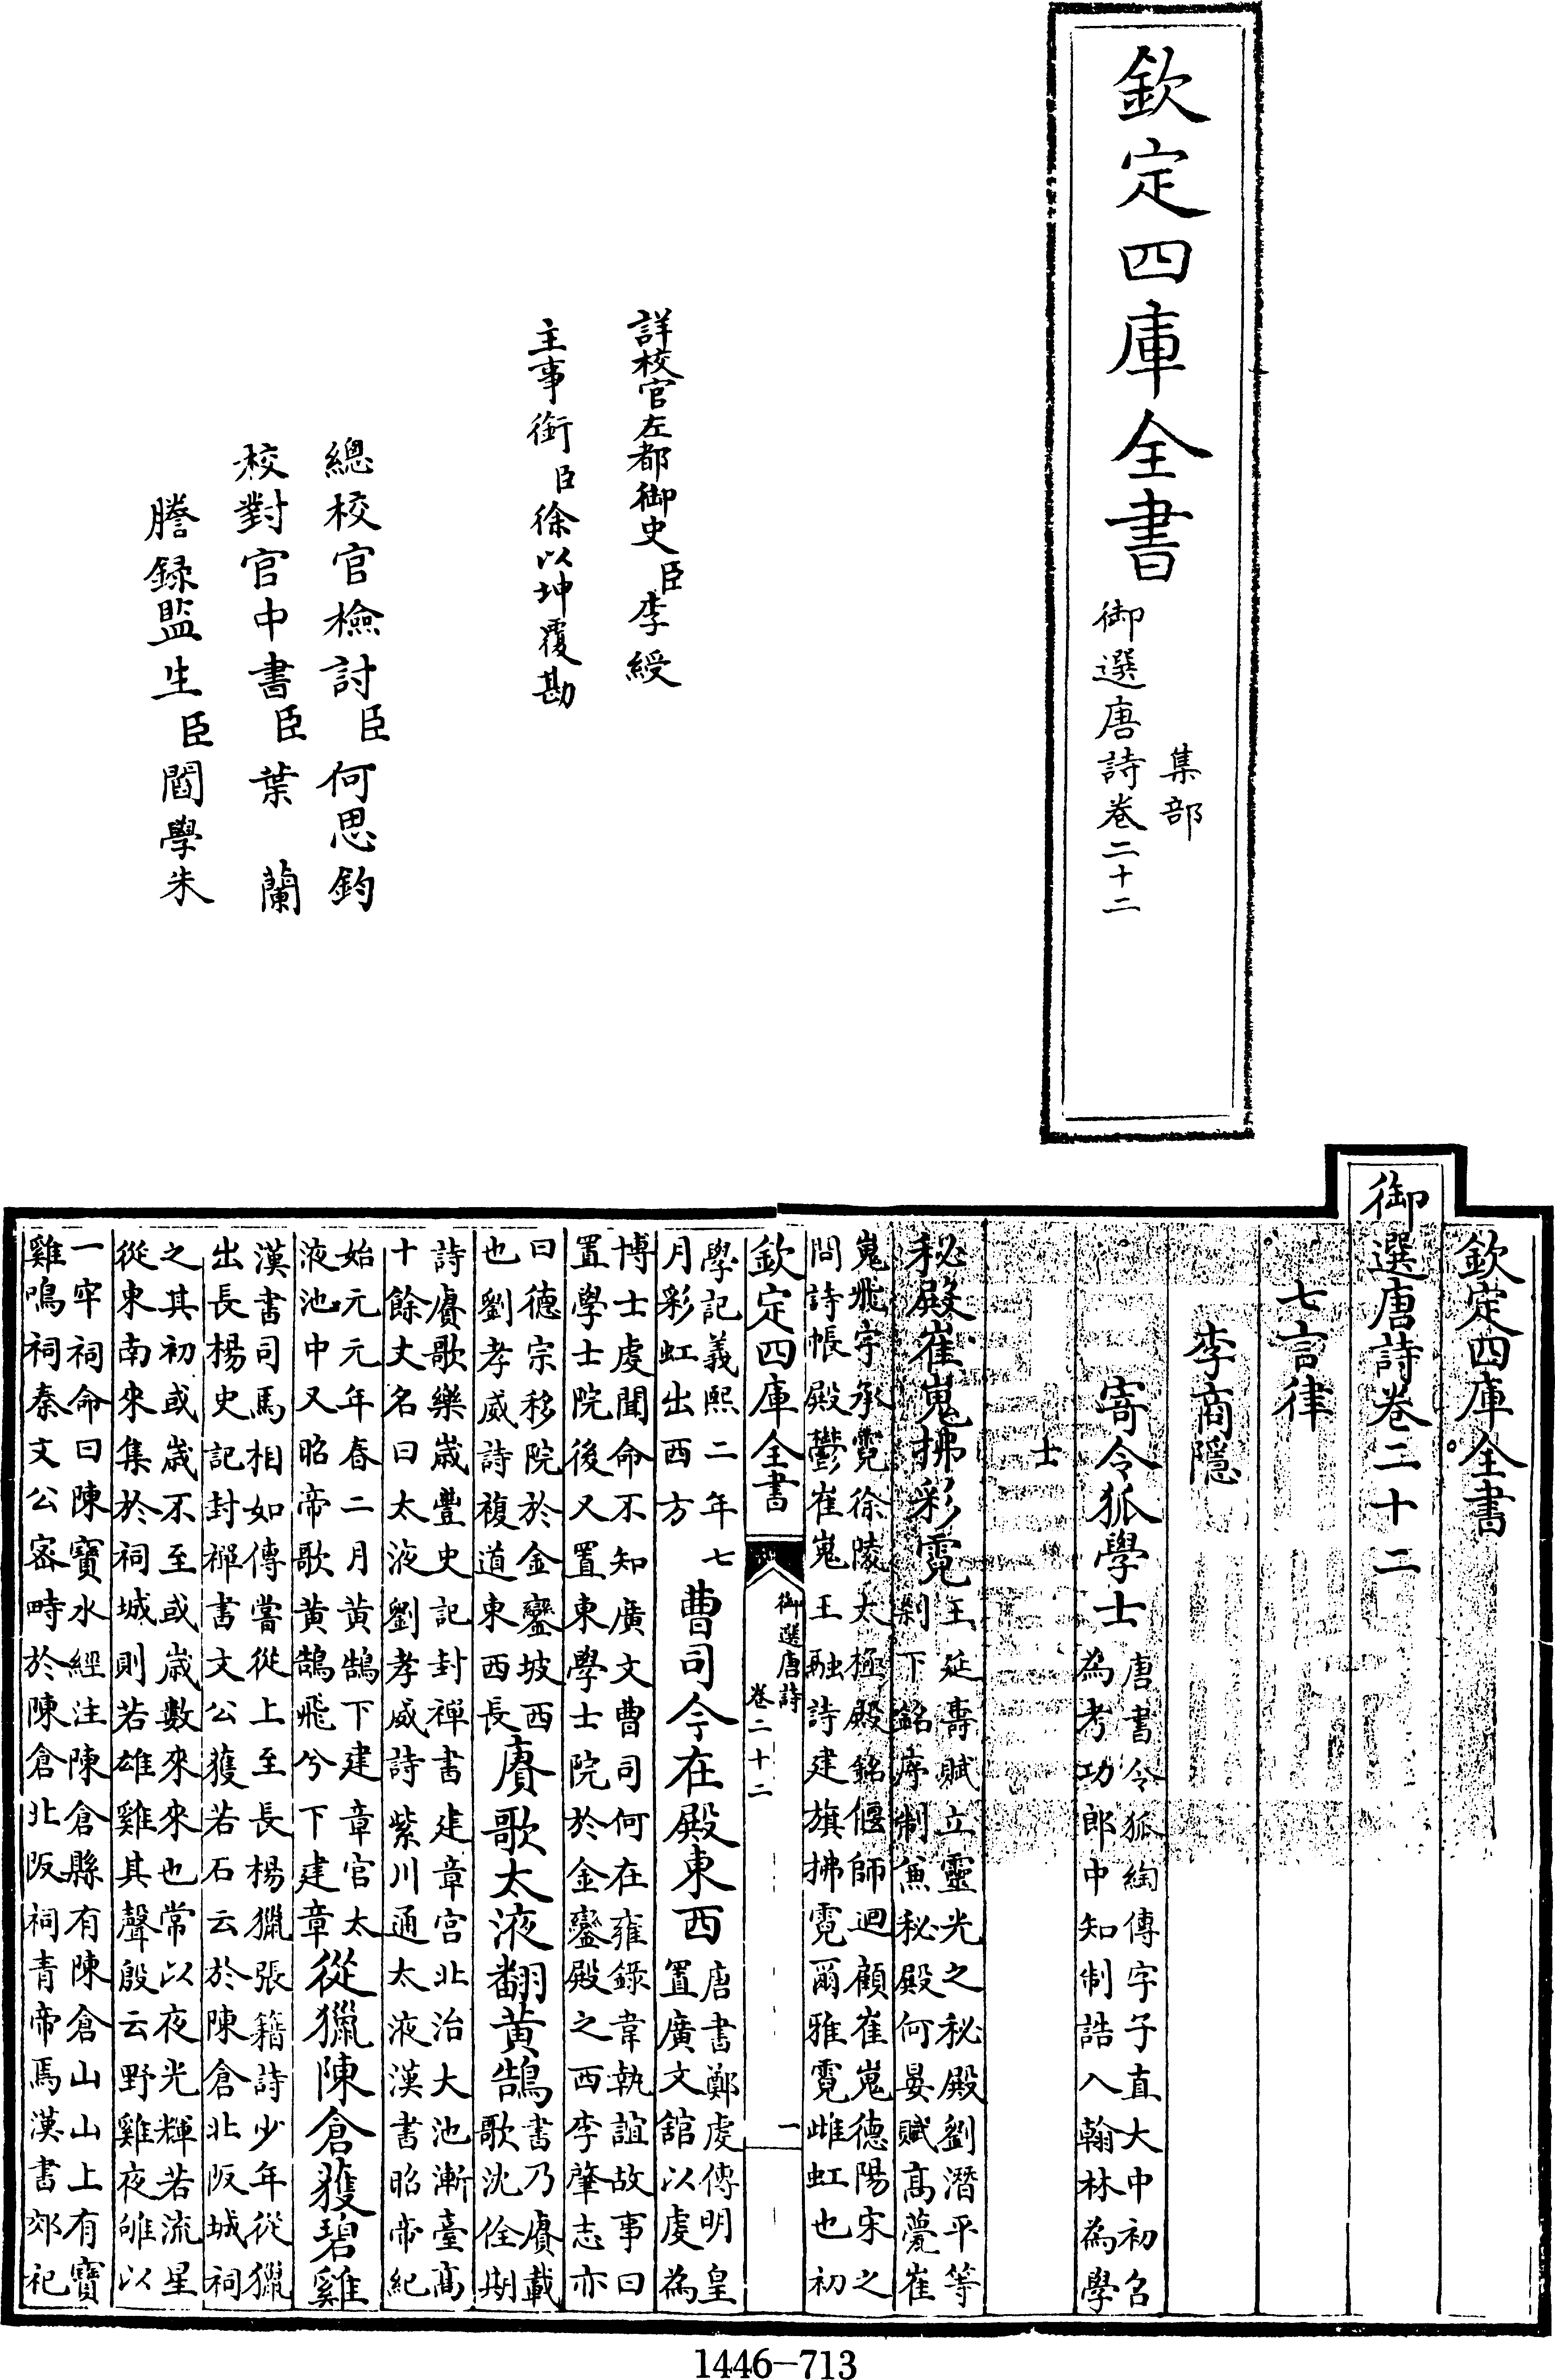 欽定四庫全書
集部
御選唐詩卷二十二
詳校官左都御史臣李綬
主事銜臣徐以坤覆勘
總校官檢討臣何思鈞
校對官中書臣葉蘭
謄録監生臣閻學朱
欽定四庫全書
御選唐詩卷二十二
七言律
李商隱
寄令狐學士唐書令狐綯傳字子直大中初召
為考功郎中知制誥入翰林為學
士
秘殿崔嵬拂彩霓王延壽賦立靈光之秘殿劉潛平等
刹下銘序制兼秘殿何晏賦高甍崔
嵬飛宇承霓徐陵太極殿銘偃師迴顧崔嵬德陽宋之
問詩帳殿鬱崔嵬王融詩建旗拂霓爾雅霓雌虹也初
欽定四庫全書
御選唐詩
卷二十二
一
學記義熙二年七
月彩虹出西方
曹司今在殿東西唐書鄭虔傳明皇
置廣文舘以虔為
博士虔聞命不知廣文曹司何在雍錄韋執誼故事曰
置學士院後又置東學士院於金鑾殿之西李肇志亦
曰德宗移院於金鑾坡西
也劉孝威詩複道東西長
賡歌太液翻黄鵠書乃賡載
歌沈佺期
詩賡歌樂歳豐史記封禪書建章宫北治大池漸臺高
十餘丈名曰太液劉孝威詩紫川通太液漢書昭帝紀
始元元年春二月黄鵠下建章宫太
液池中又昭帝歌黄鵠飛兮下建章
從獵陳倉獲碧雞
漢書司馬相如傳嘗從上至長楊獵張籍詩少年從獵
出長楊史記封禪書文公獲若石云於陳倉北阪城祠
之其初或歳不至或歳數來來也常以夜光輝若流星
從東南來集於祠城則若雄雞其聲殷云野雞夜雊以
一牢祠命曰陳寶水經注陳倉縣有陳倉山山上有寶
雞鳴祠秦文公密畤於陳倉北阪祠青帝焉漢書郊祀
1446-713